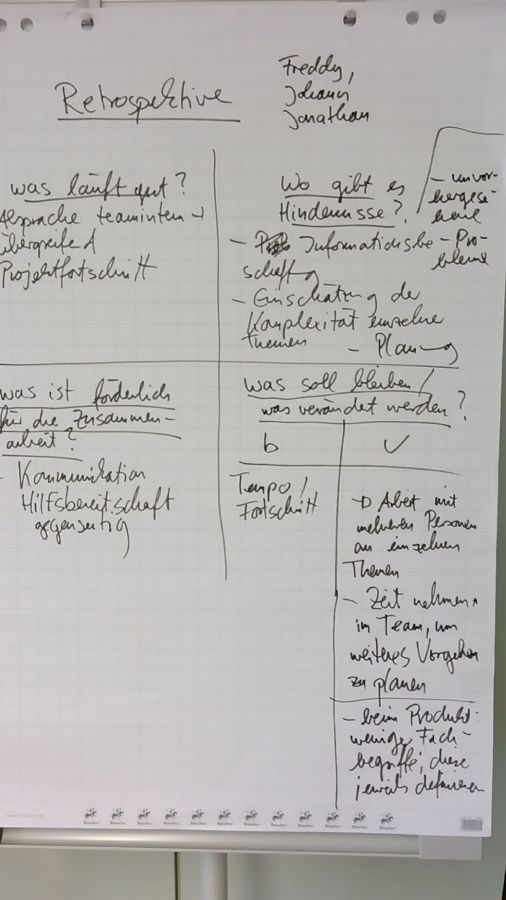 Retrospektive
Freddy,
Johann
Jonathan
was läuft gut?
Absprache teamintern +
übergreifend
Projektfortschritt
Wo gibt es
Hindernisse?
- Informationsbe-
schaffung
- Einschätzung der
Komplexität einzelne
Themen
- Planung
- unvor-
hergese-
hene
Pro-
bleme
was ist förderlich
für die Zusammen-
arbeit?
- Kommunikation
Hilfsbereitschaft
gegenseitig
was soll bleiben /
was verändet werden?
b
v
Tempo /
Fortschritt
Arbeit mit
mehreren Personen
an einzelnen
Themen
- Zeit nehmen
im Team, um
weiteres Vorgehen
zu planen
- beim Produkt:
wenige Fach-
begriffe, diese
jeweils definieren